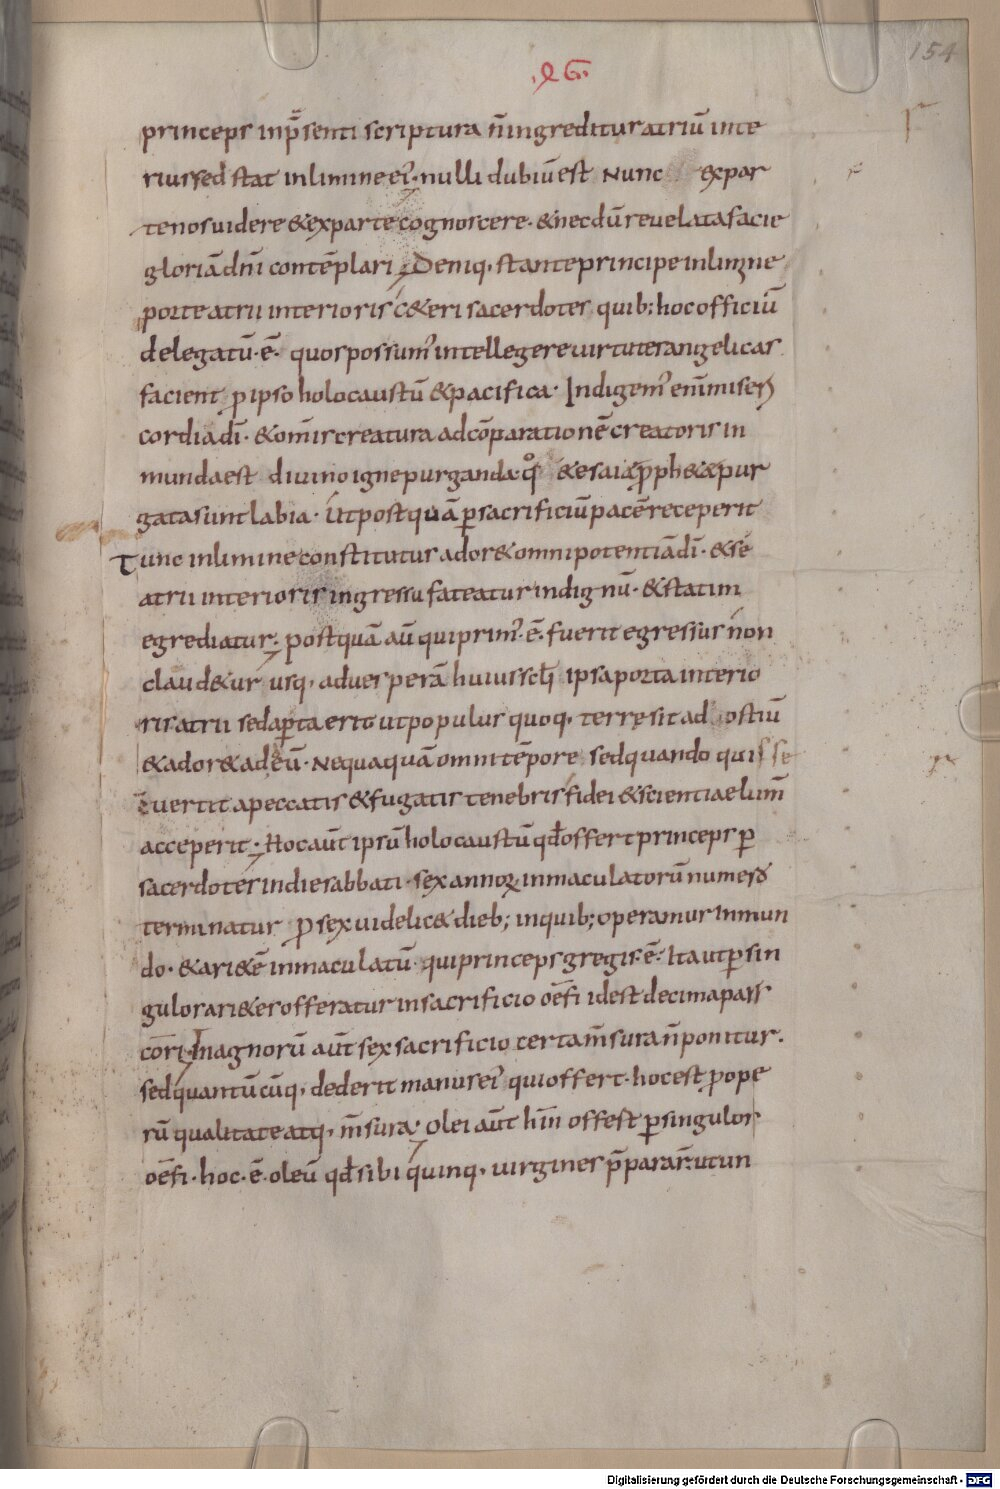 154
.LG.
princeps inp̄senti scriptura n̄ingreditur atriū inte
rius sed stat inlimine ei᾽· nulli dubiū est Nunc expar
te nos uidere &exparte cognoscere· &necdū reuelata facie
gloriā dn̄i contēplari; Deniq, stante principe inlimine
porte atrii interioris c&eri sacerdotes quib; hoc officiū
delegatū·ē· quos possum᾽ intellegere uirtutes angelicas
facient ꝓ ipso holocaustū &pacifica· Indigem᾽ enī miseri
cordia dī· &om̄is creatura adcōparationē creatoris in
munda est diuino igne purganda· qm̊ &esaiae ꝓph&ae pur
gata sunt labia· Ut postquā ꝑ sacrificiū pacē receperit
Tunc inlimine constitutus ador& omnipotentiā dī· &se
atrii interioris ingressu fateatur indignū· &statim
egrediatur; postquā aū qui prim᾽·ē· fuerit egressus non
claud&ur usq, aduesperā huius sc̄li ipsa porta interio
ris atrii sed aꝑta erit ut populus quoq, terrę sit ad ostiū
&ador& ad eū· Nequaquā omni tēpore sed quando quis se
cūertit apeccatis &fugatis tenebris fidei &scientiae lum̄
acceperit; Hoc aūt ipsū holocaustū qđ offert princeps ꝑ
sacerdotes indie sabbati· sex annoꝝ inmaculatorū numero
terminatur ꝓ sex uidelic& dieb; inquib; operamur inmun
do· &ari&ē inmaculatū· qui princeps gregis·ē· Ita ut ꝑ sin
gulos ari&es offeratur insacrificio oēfi idest decima pars
cōri; Inagnorū aūt sex sacrificio certa m̄sura n̄ponitur·
sed quantūcūq, dederit manus ei᾽ qui offert· hoc est ꝓ ope
rū qualitate atq, m̄sura; Olei aūt hīn offest ꝑ singulos
oēfi· hoc·ē· oleū qđ sibi quinq, uirgines p̄pararr̄ ut un
Digitalisierung gefördert durch die Deutsche Forschungsgemeinschaft - DFG